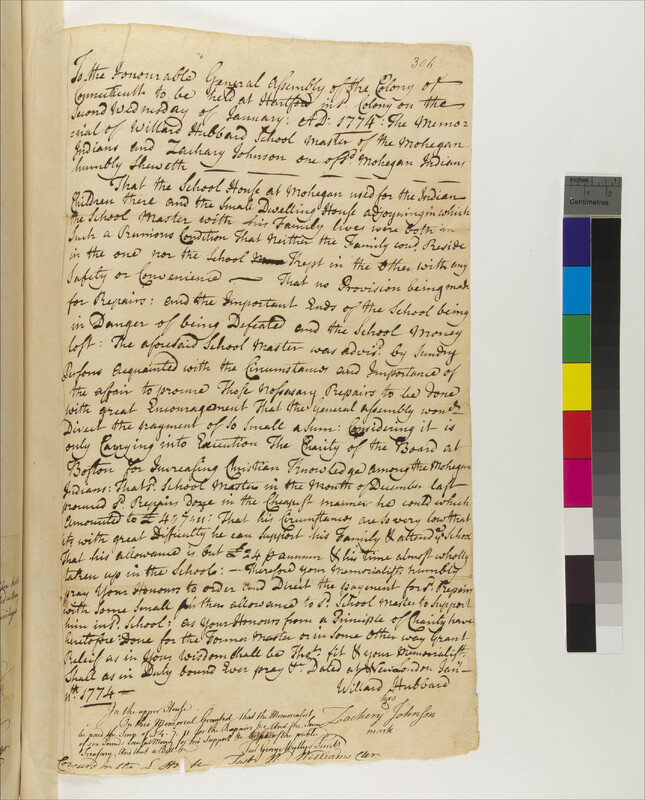 306
To the Honourable General Assembly of the Colony of
Connecticutt to be held at Hartford in sd. Colony on the
Second Wednesday of January: AD: 1774: The Memor
=ial of Willard Hubbard School Master of the Mohegan
Indians and Zachary Johnson one of sd. Mohegan Indians
humbly Sheweth
That the School House at Mohegan used for the Indian
Children there and the Small Dwelling House adjoyning in which
the School Master with his Family lives were both in
Such a Ruinous Condition That neither the Family coud. Reside
in the one nor the School kept in the Other with any
Safety or Convenience — That no Provision being made
for Repairs: and the Important Ends of the School being
in Danger of being Defeated and the School Money
lost: The aforesaid School Master was advisd. by Sundry
Persons acquainted with the Circumstances and Importance of
the affair to procure Those nessasary Repairs to be done
with great Encouragement That the General assembly woud.
Direct the payment of So Small a Sum: Considering it is
only Carrying into Execution The Charity of the Board at
Boston for Increasing Christian Knowledge among the Mohegan
Indians: That sd. School Master in the Month of December last
procured sd. Repairs done in the Cheapest manner he could which
amounted to £4,,7,,11: That his Circumstances are so very low that
its with great Difficulty he can Support his Family & attend sd. School
That his allowance is but £24 p annum & his time almost wholly
taken up in the School: — Therefore your Memorialists humbly
pray Your Honours to order and Direct the payment for sd. Repairs
with Some Small further allowance to sd. School Master to Support
him in sd. School: as Your Honours from a Principle of Charity have
heretofore Done for the Former Master or in Some other way Grant
Relief as in Your Wisdom Shall be Thot. fit & your Memorialists
Shall as in Duty bound Ever pray &c. Dated at New London Jany.
11th. 1774 —
Willard Hubbard
his
Zachery Johnson
mark
In the upper House
On this Memorial Granted that the Memorialist
be paid the Sum of £4. 7. 11 for the Repairs & also the Sum
of Six Pounds Lawful Money for his Support out of the public
Treasury, And that a Bill &c.
Test George Wyllys Secrety
Concurd in the L Ho
Test Wm Williams Cler
Inches 1 2
Centimetres